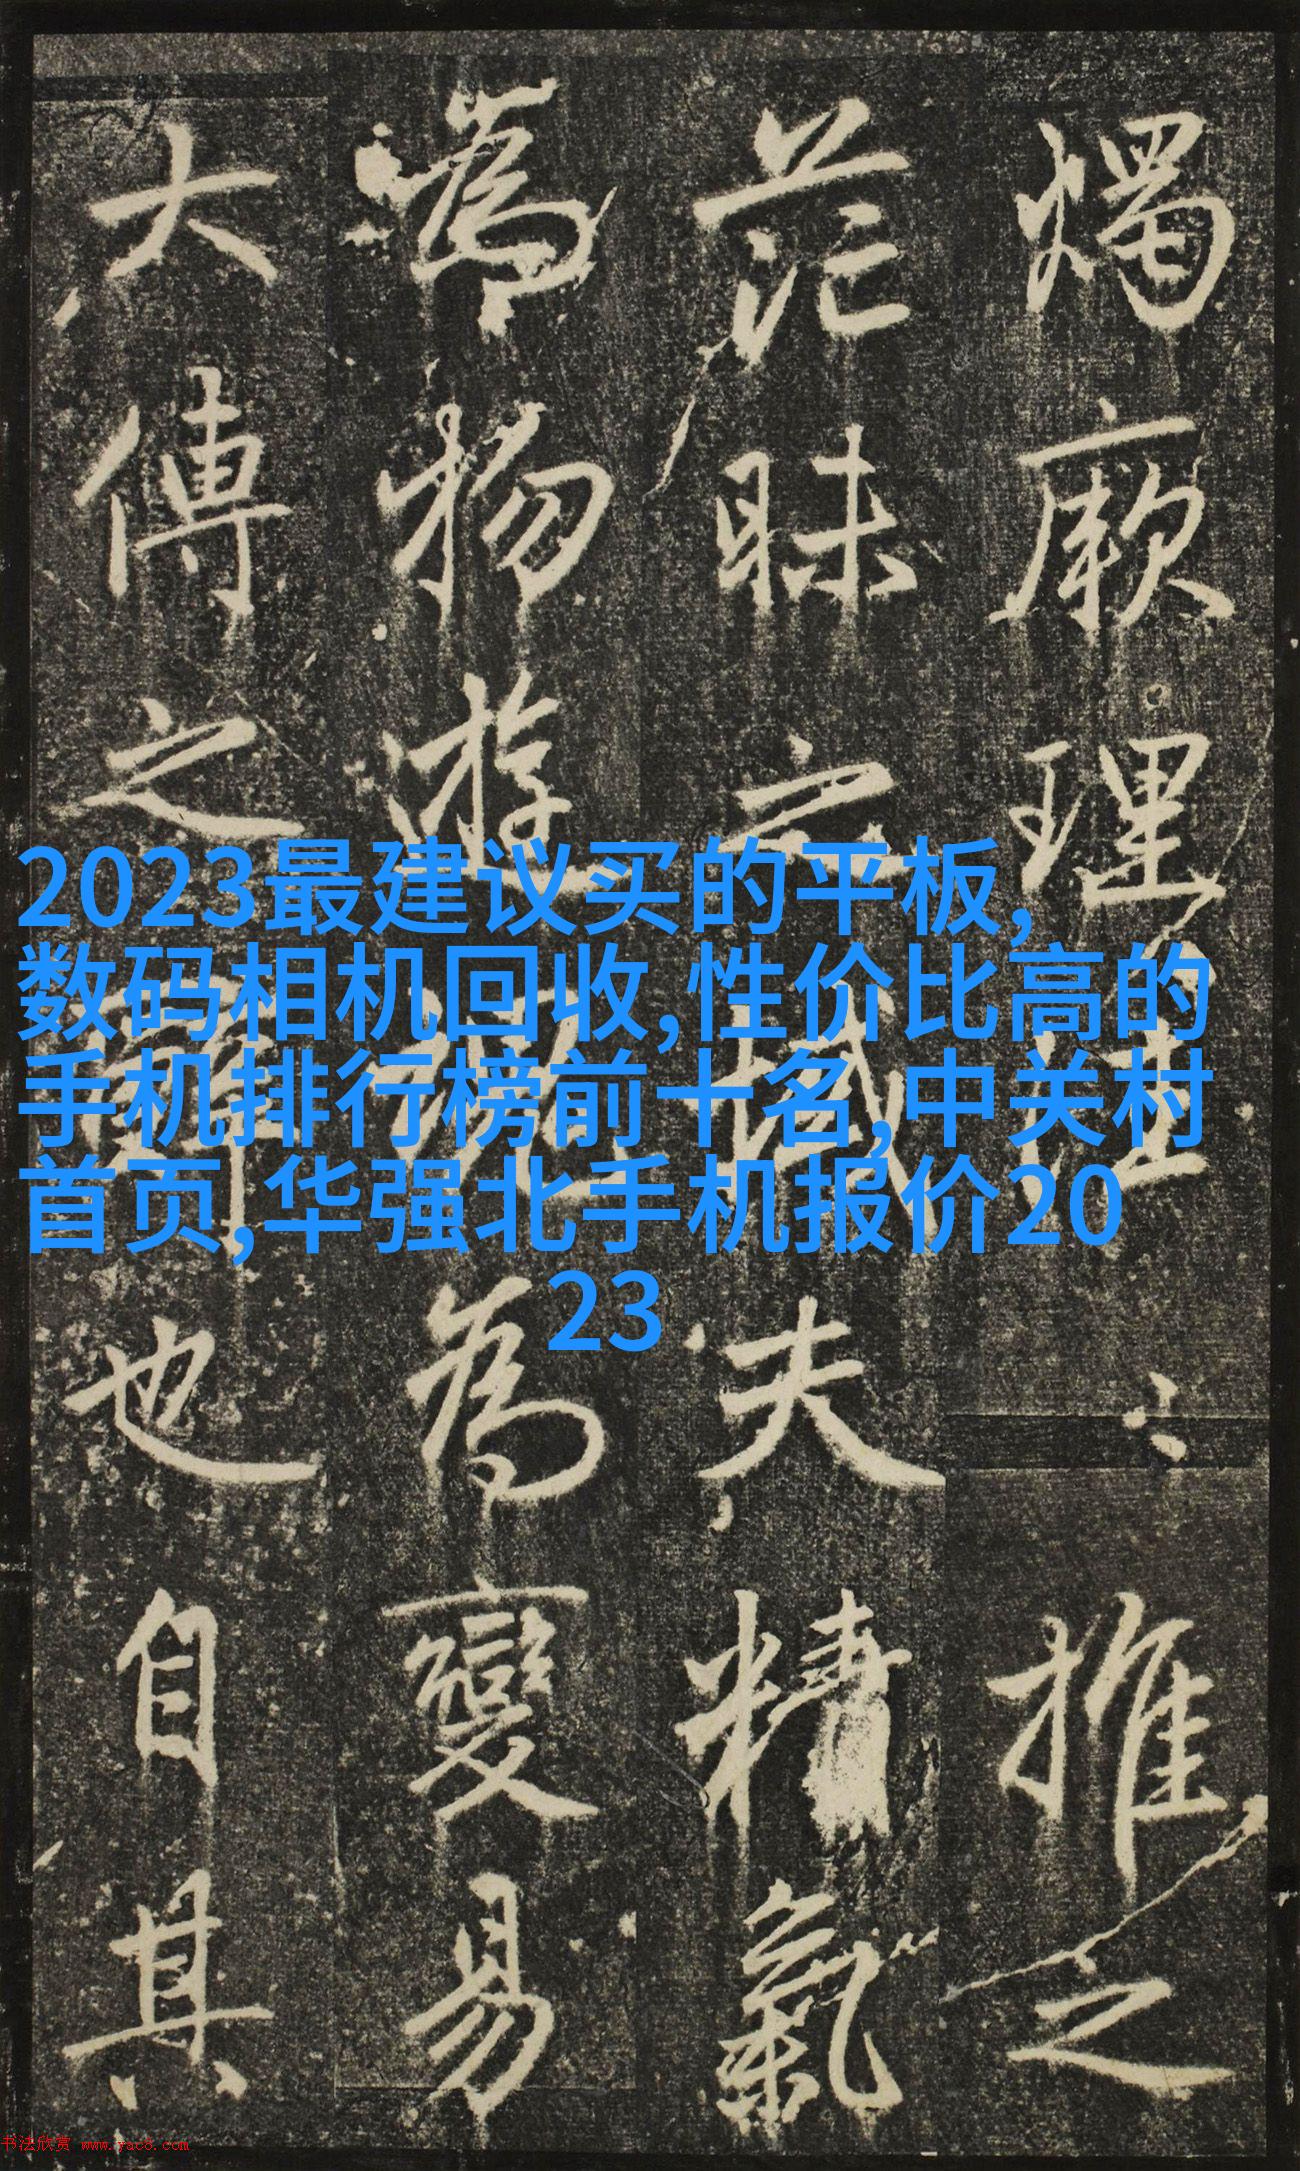 燭厥理推之
茫昧之域夫精氣
為物遊魂為變易
大傳之謂也自其
2023最建议买的平板,
数码相机回收,性价比高的
手机排行榜前十名,中关村
首页,华强北手机报价20
23
书法欣赏 www.yac8.com